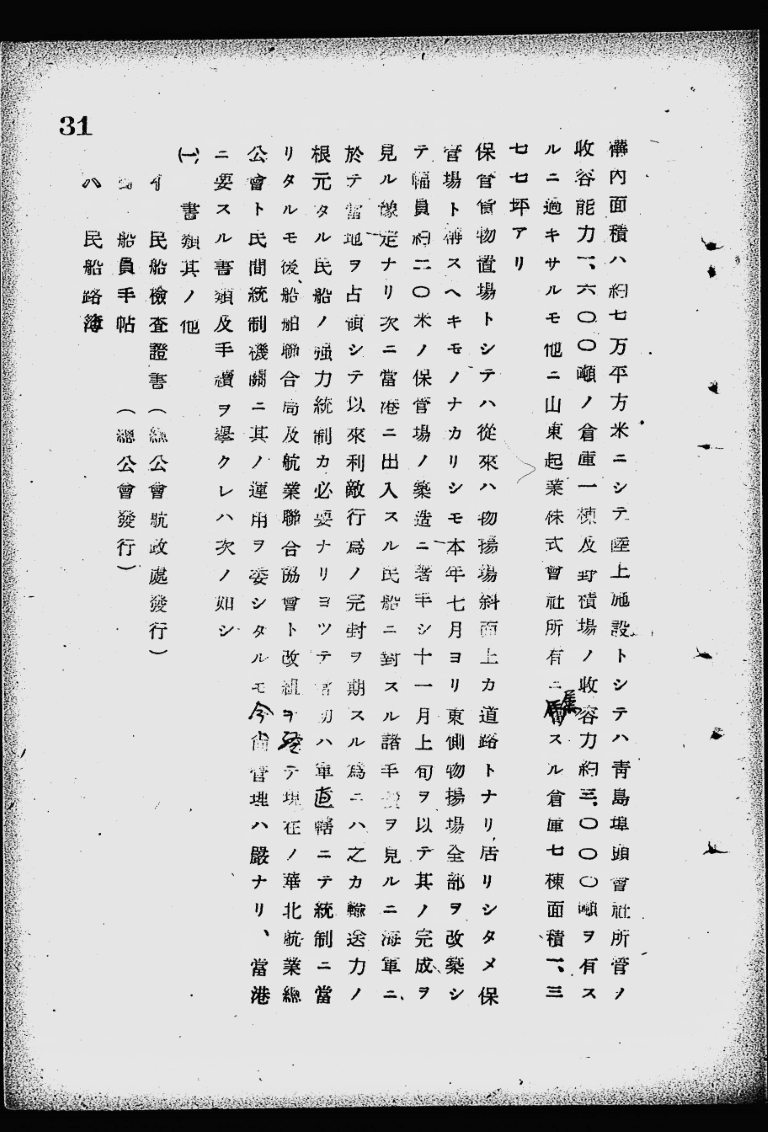 31
構内面積ハ約七万平方米ニシテ陸上施設トシテハ青島埠頭會社所管ノ
收容能力一、六〇〇噸ノ倉庫一棟及野積場ノ收容力約三、〇〇〇噸ヲ有ス
ルニ過キサルモ他ニ山東起業株式會社所有ニ屬スル倉庫七棟面積一、三
七七坪アリ
保管貨物置場トシテハ從來ハ物揚場斜面上カ道路トナリ居リシタメ保
管場ト稱スヘキモノナカリシモ本年七月ヨリ東側物揚場全部ヲ改築シ
テ幅員約二〇米ノ保管場ノ築造ニ著手シ十一月上旬ヲ以テ其ノ完成ヲ
見ル豫定ナリ次ニ當港ニ出入スル民船ニ對スル諸手續ヲ見ルニ海軍ニ
於テ當地ヲ占領シテ以來利敵行爲ノ完封ヲ期スル爲ニハ之カ輸送力ノ
根元タル民船ノ强力統制カ必要ナリヨツテ當初ハ軍直轄ニテ統制ニ當
リタルモ後、船舶聯合局及航業聯合協會ト改組ヲ經テ現在ノ華北航業總
公會ト民間統制機關ニ其ノ運用ヲ委シタルモ今尙管理ハ嚴ナリ、當港
ニ要スル書類及手續ヲ擧クレハ次ノ如シ
(一)、書類其ノ他
イ 民船檢査證書(總公會航政處發行)
船員手帖 (總公會發行)
ハ 民船路簿